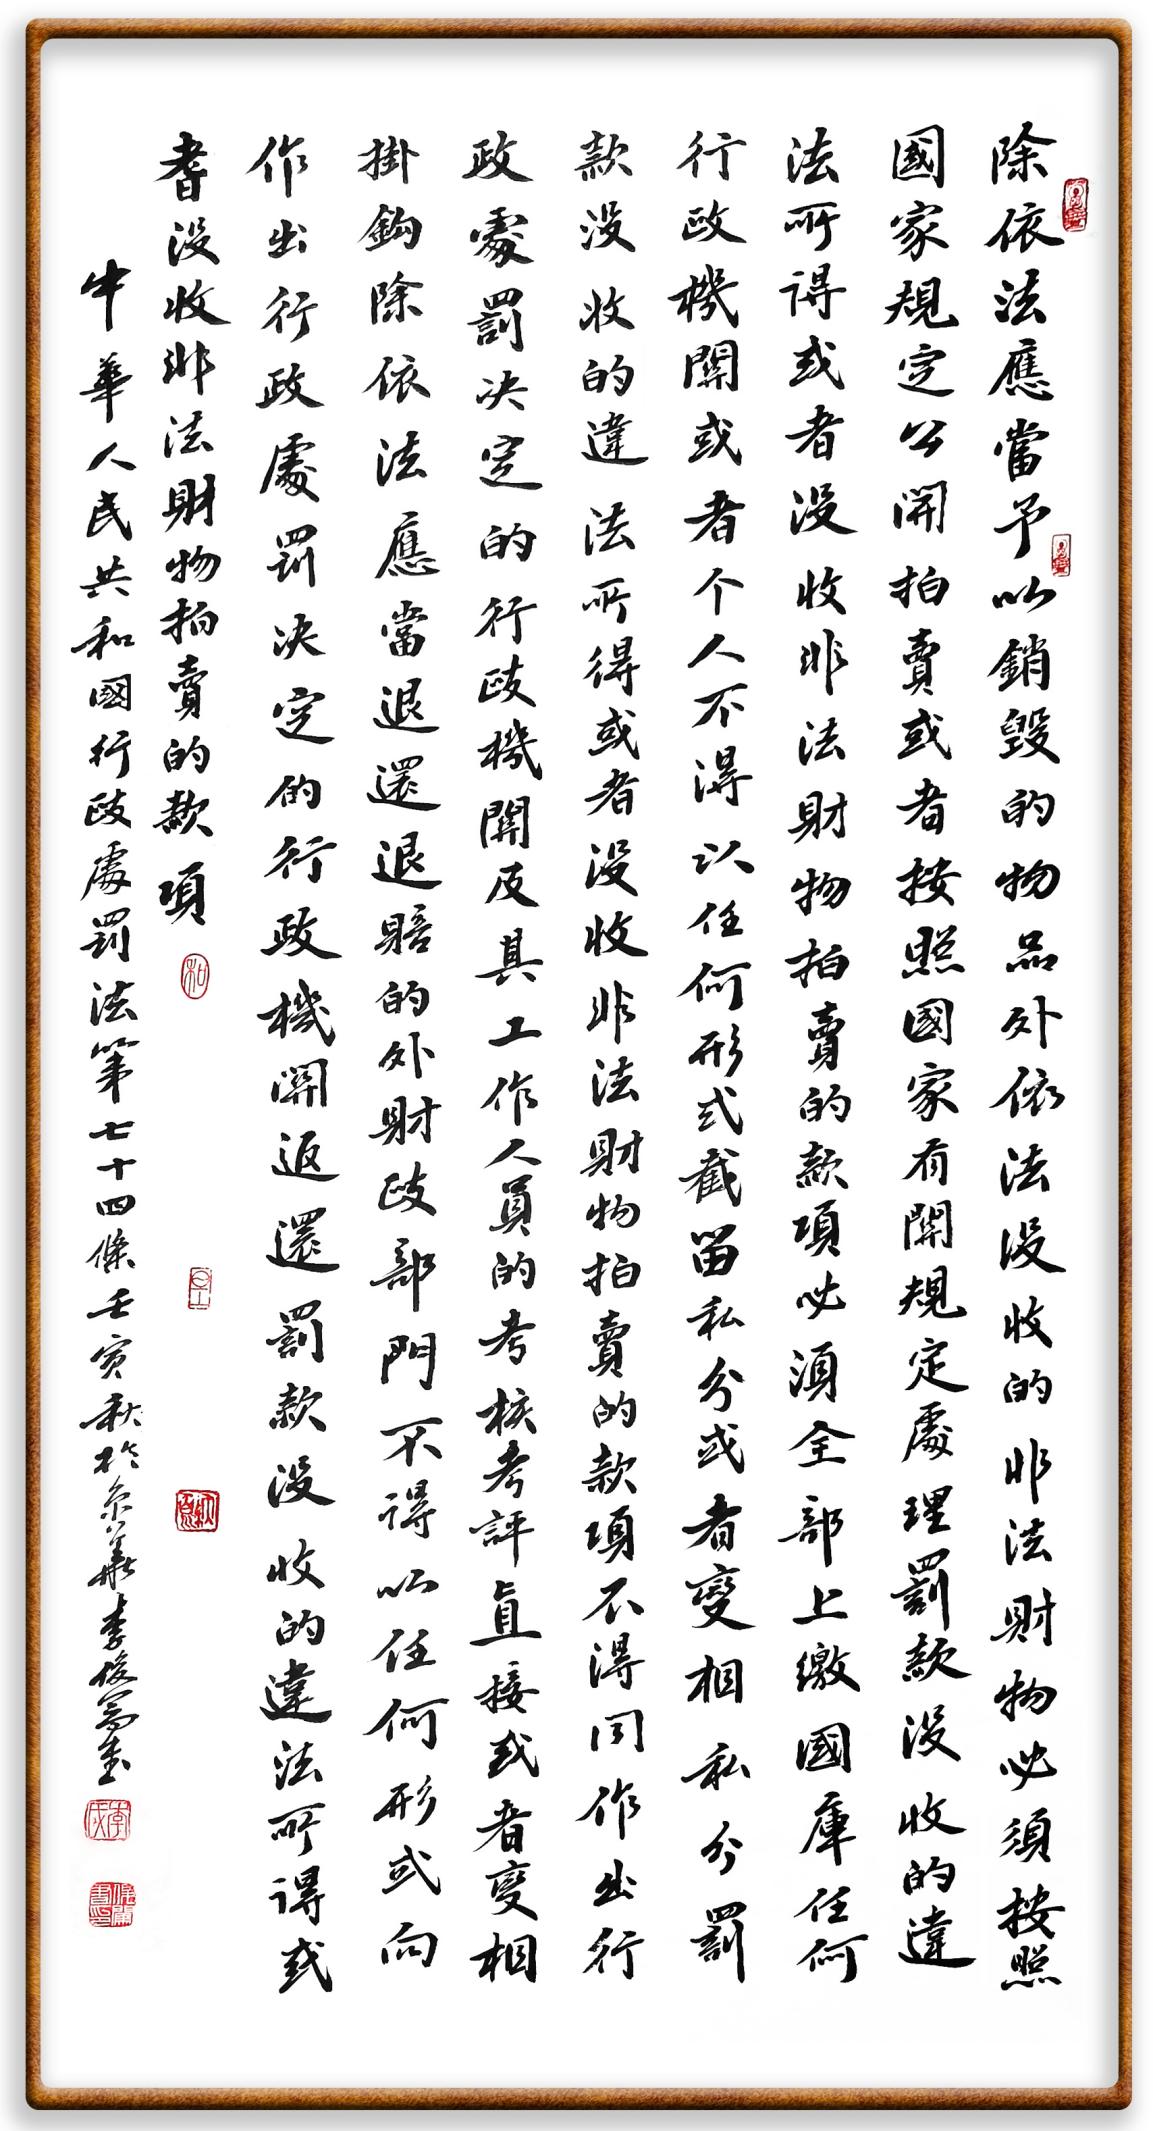 除依法應當予以銷毀的物品外依法没收的非法財物必須按照
國家規定公開拍賣或者按照國家有關規定處理罰款没收的違
法所得或者没收非法財物拍賣的款項必須全部上繳國庫任何
行政機關或者个人不得以任何形式截留私分或者變相私分罰
款没收的違法所得或者没收非法財物拍賣的款項不得同作出行
政處罰决定的行政機關及其工作人員的考核考評直接或者變相
掛鈎除依法應當退還退賠的外財政部門不得以任何形式向
作出行政處罰决定的行政機關返還罰款没收的違法所得或
者没收非法財物拍賣的款項
中華人民共和國行政處罰法第七十四條壬寅秋於京華李俊